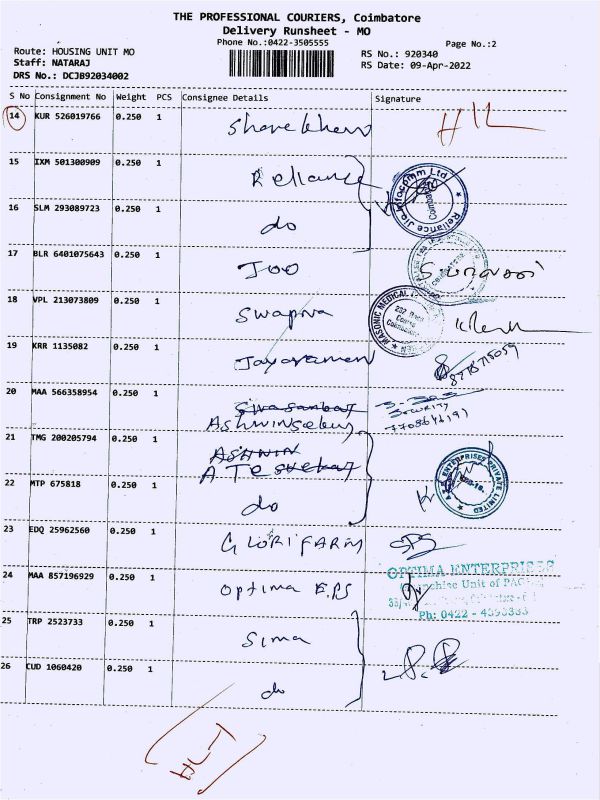 THE PROFESSIONAL COURIERS, Coimbatore
Delivery Runsheet - MO
Phone No.:0422-3505555
Page No.:2
Route: HOUSING UNIT MO
Staff: NATARAJ
DRS No.: DCJB92034002
RS No.: 920340
RS Date: 09-Apr-2022
S No Consignment No Weight PCS Consignee Details Signature
14 KUR 526019766 0.250 1
15 IXM 501300909 0.250 1 Reliance
Reliance Jio Infocomm Ltd
16 SLM 293089723 0.250 1 do
17 BLR 6401075643 0.250 1
18 VPL 213073809 0.250 1 Swapna
MASONIC MEDICAL
Coimbatore
19 KRR 1135082 0.250 1 Jayaraman
20 MAA 566358954 0.250 1
Security
21 TMG 200205794 0.250 1 ASHWIN
ENTERPRISES PRIVATE LIMITED
22 MTP 675818 0.250 1 do
23 EDQ 25962560 0.250 1 GLORIFARM
24 MAA 857196929 0.250 1 Optima EPS
OPTIMA ENTERPRISES
Franchise Unit of
Ph: 0422 -
25 TRP 2523733 0.250 1 Sima
26 CUD 1060420 0.250 1 do